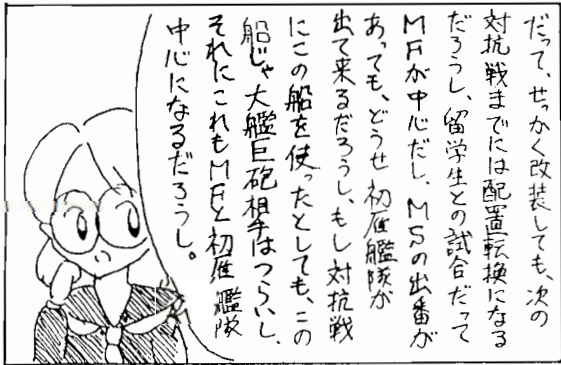 だって、せっかく改装しても、次の
対抗戦までには配置転換になる
だろうし、留学生との試合だって
MFが中心だし、MSの出番が
あっても、どうせ初雁艦隊が
出て来るだろうし、もし対抗戦
にこの船を使ったとしても、この
船じゃ大艦巨砲相手はつらいし、
それにこれもMFと初雁艦隊
中心になるだろうし。